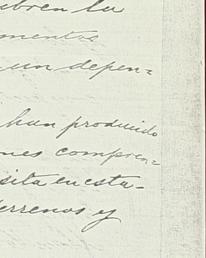 ubren la
mentos
un depen=
han producido
ones compren=
sita en esta-
terrenos y